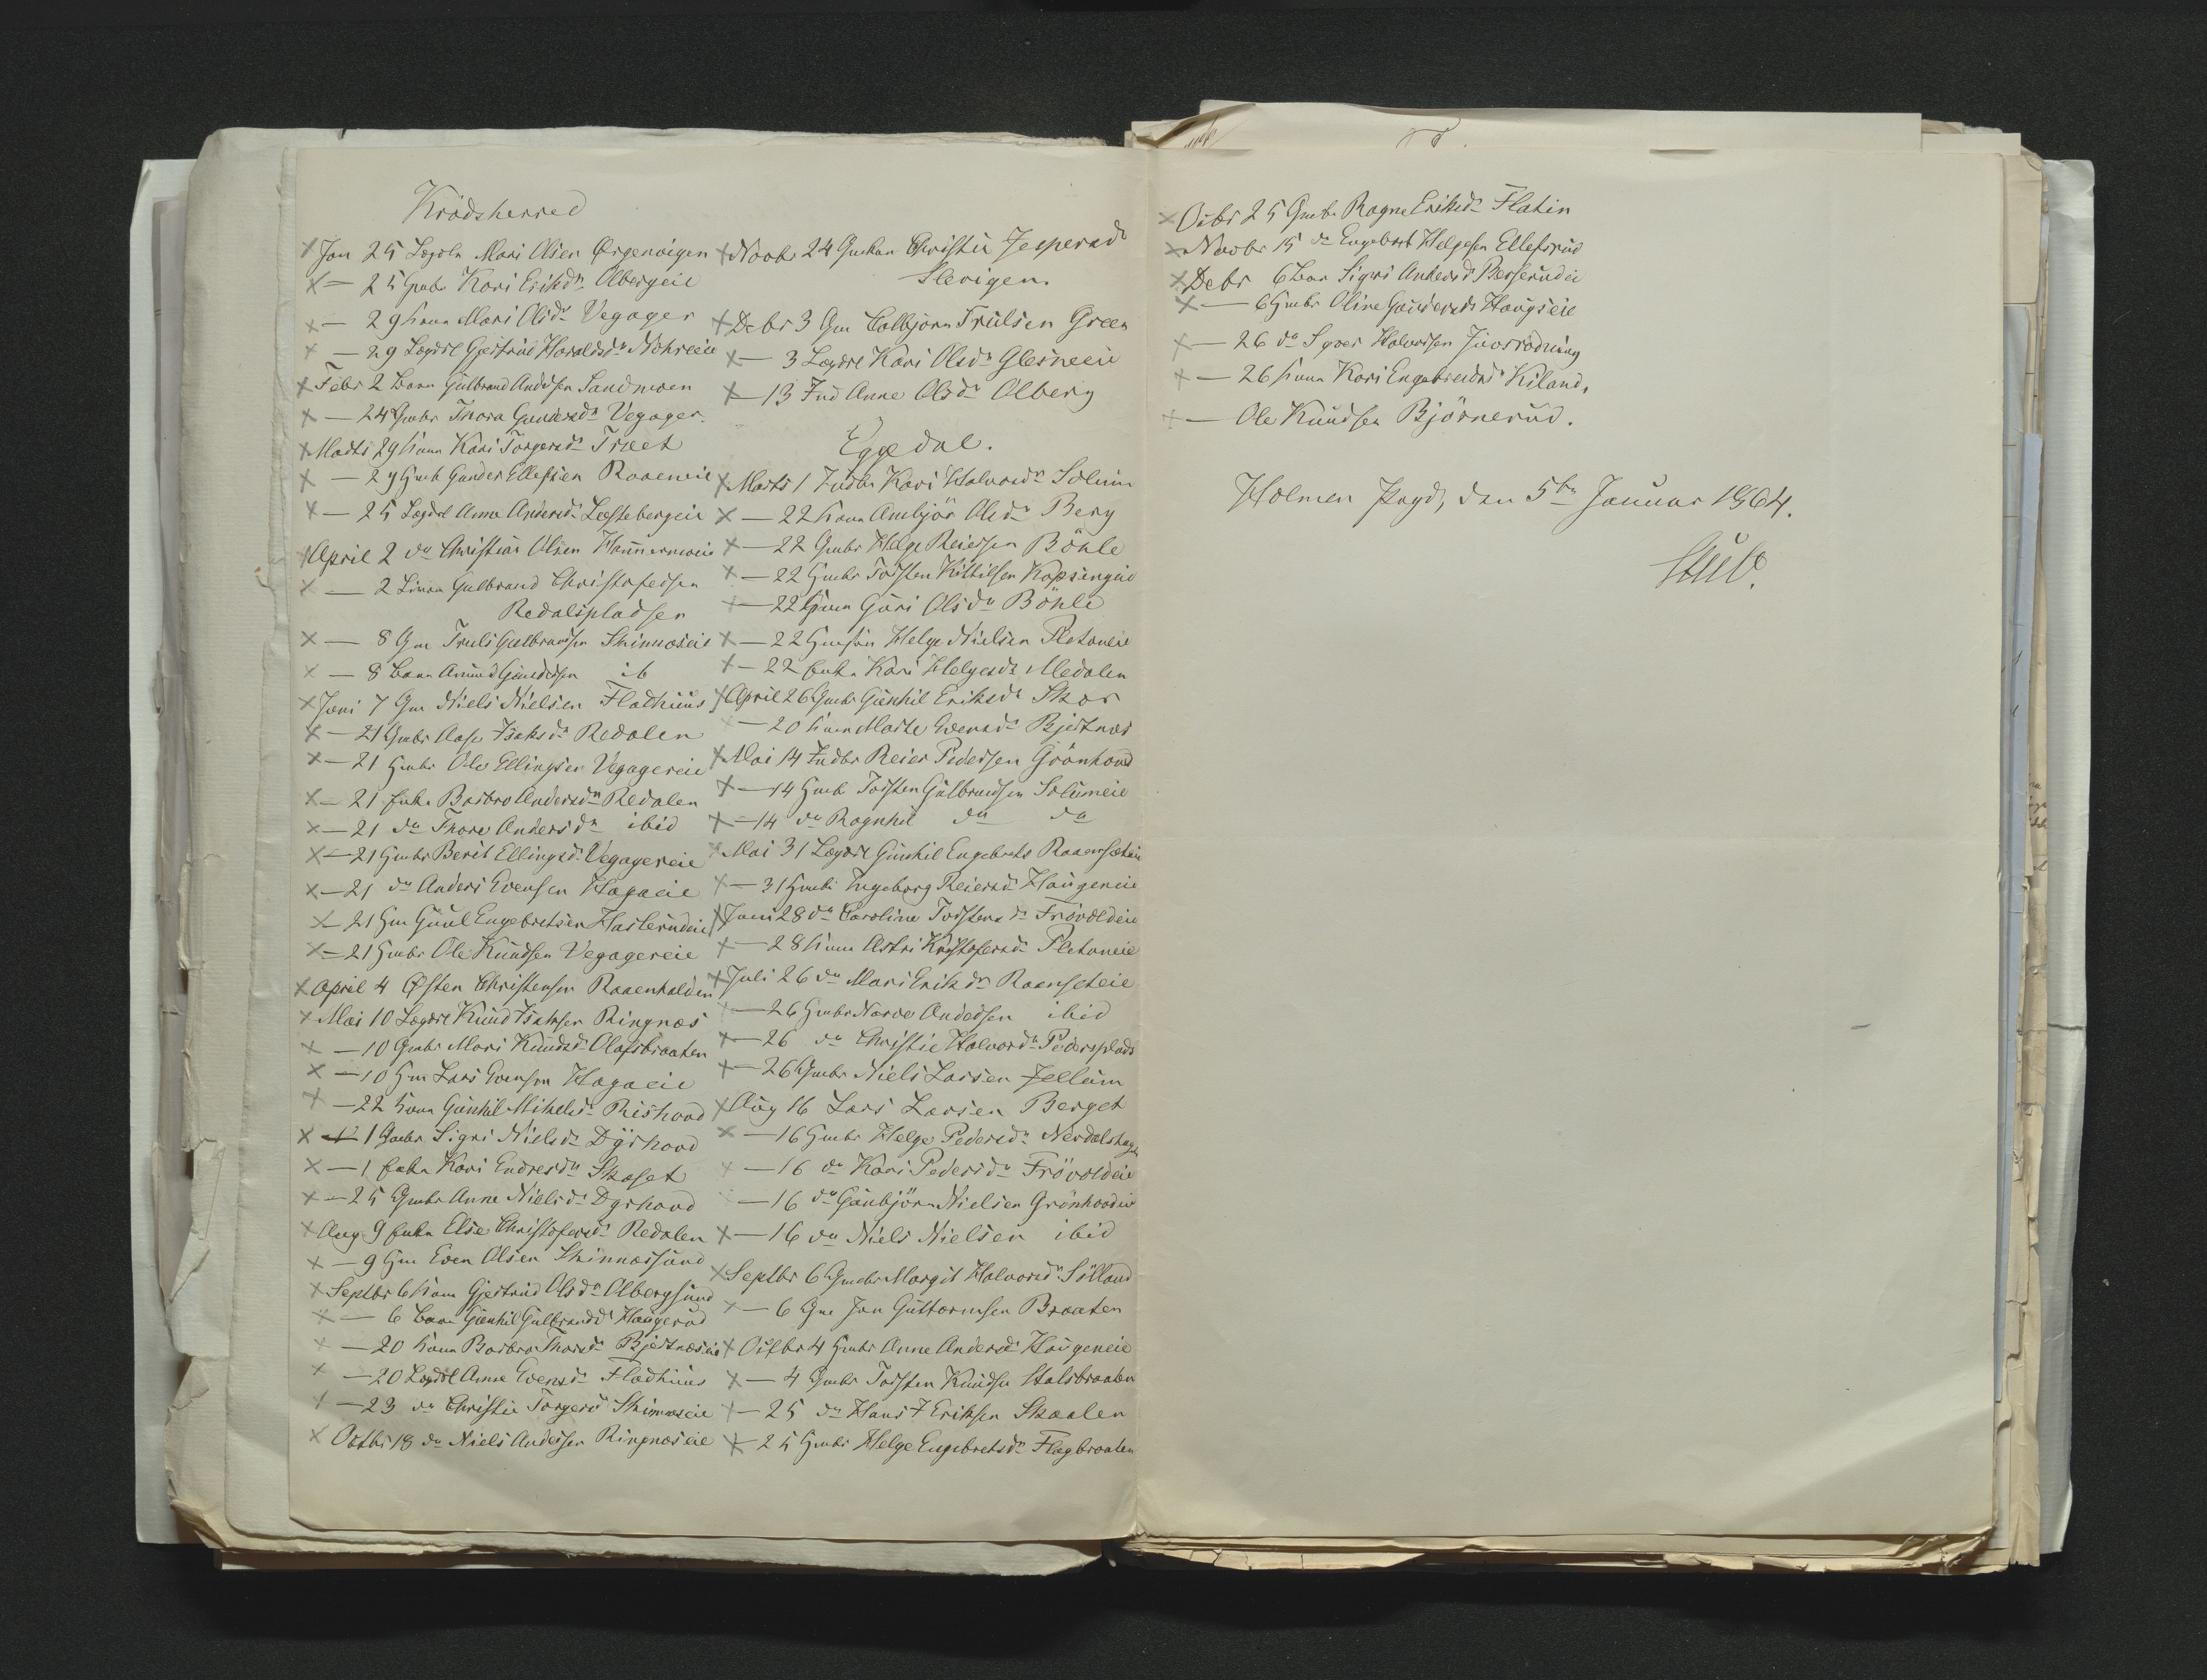 Krødsherred
Jan 25 Lægdln Mari Olsen Ørgenvigen
— 25 Gmbr Kari Eriksdr Olbergeie
— 29 Kona Mari Olsdr Vegager
— 29 Lægdsl Gjertrud Haraldsdr Nøhreeie
Febr 2 Barn Gulbrand Andersen Sandmoen
— 24 Gmbr Thora Gundersdr Vegager
Marts 29 Kona Kari Torgersdr Træet
— 29 Gmb Gunder Ellefsen Raaeneie
— 25 Lægdsl Anne Andersdr Lestebergeie
April 2 do Christian Olsen
— 2 Gulbrand Christofersen
Redalspladsen
— 8 Gm Truls Gulbrandsen Skinnæseie
— 8 Barn Amund Gundersen ib
Juni 7 Gm Niels Nielsen Fladhuus
— 21 Gmbr Aase Isaksdr Redalen
— 21 Gmbr Ole Ellingsen Vegagereie
— 21 Enke Barbro Andersdn Redalen
— 21 do Thore Andersdn ibid
— 21 Gmbr Berit Ellingsd. Vegagereie
— 21 do Anders Evensen Hagaeie
— 21 Gm Guul Engebretsen Haslerudeie
— 21 Gmbr Ole Knudsen Vegagereie
April 4 Østen Christensen Raaenhalden
Mai 10 Lægdsl Knud Isaksen Ringnæs
— 10 Gmbr Mari Knudsd. Olafsbraaten
— 10 Gm Lars Evensen Hagaeie
— 22 Kona Gunhil Mikelsd. Rishovd
— 1 Gmbr Sigri Nielsdr Dyrhovd
— 1 Enke Kari Endresdn Skaset
— 25 Gmbr Anne Nielsdr Dyrhovd
Aug 9 Enke Else Christofersd. Redalen
— 9 Gm Even Olsen Skinnæssund
Septbr 6 Kona Gjertrud Olsdn Olbergsund
— 6 Barn Gunhil Gulbrandsd Haugerud
— 20 Kona Barbro Thorsdr Bjertnæseie
— 20 Lægdsl Anne Evensdr Fladhuus
— 23 do Christie Torgersd Skinnæseie
Octbr 18 do Niels Andersen Ringnæseie
Novbr 24 Christie Jespersdr
Slevigen.
Debr 3 Gm Colbjørn Trulsen Green
— 3 Lægdsl Kari Olsdr Glesneeie
— 13 Ind Anne Olsdr Olberg
Eggedal.
Marts 1 Kari Halvorsdr Solum
— 22 Kona Ambjør Olsdn Berg
— 22 Gmbr Helge Reiersen Böhle
— 22 Gmbr Torsten Kittilsen Kopsengeie
— 22 Kona Guri Olsdn Böhle
— 22 Helge Nielsen Pletaneie
— 22 Enke Kari Helgesdr Medalen
April 26 Gmbr Gunhil Eriksdr Skar
— 20 Kona Marte Evensdr Bjertnæs
Mai 14 Indbr Reier Pedersen Grönhovd
— 14 Gmb Torsten Gulbrandsen Solumeie
— 14 do Ragnhil do do
Mai 31 Lægdsl Gunhil Engebrets
— 31 Gmbr Ingeborg Reiersdr Haugeneie
Juni 28 do Caroline Torstensdr Frövoldeie
— 28 Kona Astri Kristofersdr Pletaneie
Juli 26 do Mari Eriksdr Raaenseteie
— 26 Gmbr Narve Andersen ibid
— 26 do Christie Halvorsdr Pedersplads
— 26 Gmbr Niels Larsen Jellum
Aug 16 Lars Larsen Berget
— 16 Gmbr Helge Pedersdn Nerdalshagen
— 16 do Kari Pedersdn Frövoldeie
— 16 do Gunbjörn Nielsen Grönhovdeie
— 16 do Niels Nielsen ibid
Septbr 6 Gmbr Margit Halvorsdr Sölland
— 6 Gm Jon Guttormsen Braaten
Octbr 4 Gmbr Anne Andersdr Haugeneie
— 4 Gmbr Torsten Knudsen Stalsbraaten
— 25 do Hans Eriksen Skaalen
— 25 Gmbr Helge Engebretsdn Flagbraaten
Octbr 25 Gmbr Ragne Eriksdr Flatin
Novbr 15 do Engebret Helgesen Ellefsrud
Debr 6 Barn Sigri Andersd Besserudeie
— 6 Gmbr Oline Gundersdr Haugseie
— 26 do Syver Halvorsen Juvsrødning
— 26 Kona Kari Engebretsdr Kiland,
— Ole Knudsen Björnerud.
Holmen Pgrd, den 5te Januar 1864.